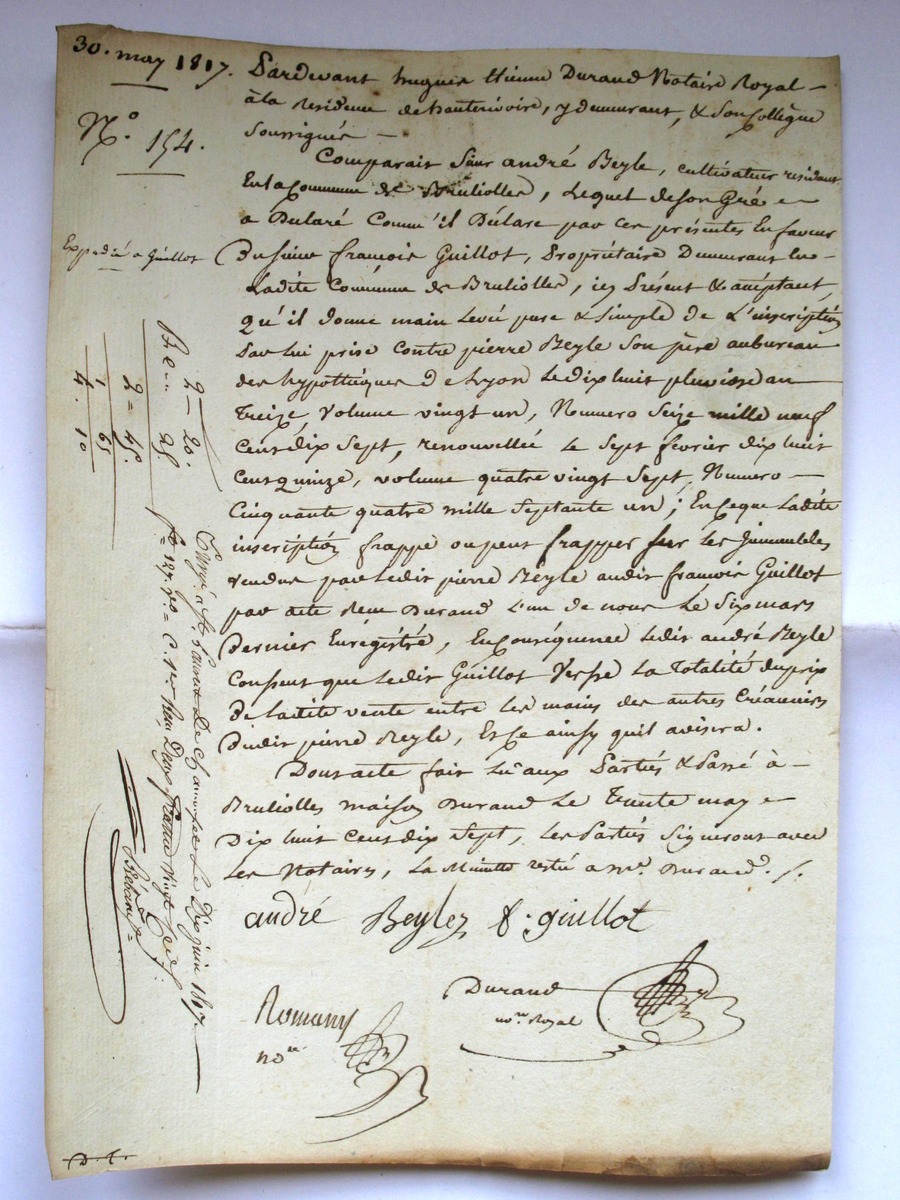 30. may 1817.
N.o 154.
Expedié a Guillot
Pardevant hugues Etienne Durand Notaire Royal –
à la residence de hauterivoire, y demeurant, & son Collègue
Soussignés –
Comparait Sieur andré Beyle, cultivateur residant
En la Commune de Bruliolles, Lequel de son Gré
a Déclaré Comme il Déclare par ces présentes En faveur
Du sieur françois Guillot, Propriétaire Demeurant En
Ladite Commune de Brulliolles, icy Présent & acceptant,
qu'il donne main Levée pure & Simple de L'inscription
Par Lui prise Contre pierre Beyle Son père au bureau
des hypothèques De Lyon Le dix huit pluviose an
Treize, Volume vingt un, Numero Seize mille neuf
Cent dix Sept, renouvellée Le Sept fevrier dix huit
Cent quinze, volume quatre vingt Sept, Numero –
Cinquante quatre mille Septante un; En ce que Ladite
inscription frappe ou peut frapper sur Les Immeubles
Vendus par Ledit pierre Beyle audit françois Guillot
par acte Reçu Durand L'un de nous Le Six mars
Dernier Enrégistré, En Conséquence Ledit andré Beyle
Consent que Ledit Guillot Verse La Totalité du prix
De Ladite vente entre Les mains des autres Créanciers
Dudit pierre Beyle, Et Ce ainsy quil avisera.
Dont acte fait Lu aux Parties & Passé à –
Brulliolles maison Durand Le Trente may
Dix huit Cent dix Sept, Les Parties Signeront avec
Les Notaires, La Minutte restée a Me. Durand. /.
andré Beyle f. guillot
Durand
nore Royal
Romany
nore
2 – 20.
25.
2 = 45.
1, 65
4. 10
Le Dix juin 1817.
fo 127. Vo = C. 1er